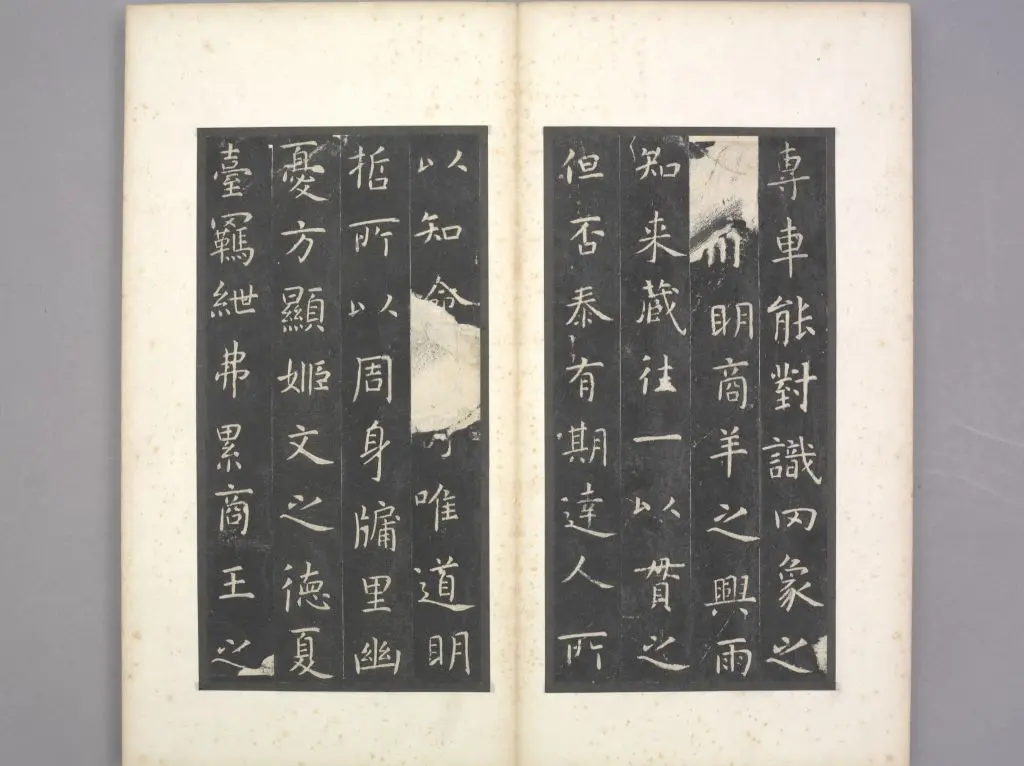 專車能對識罔象之
川明商羊之興雨
知来藏往一以貫之
但否泰有期達人所
以知命唯道明
哲所以周身牖里幽
憂方顯姬文之德夏
臺羈紲弗累商王之